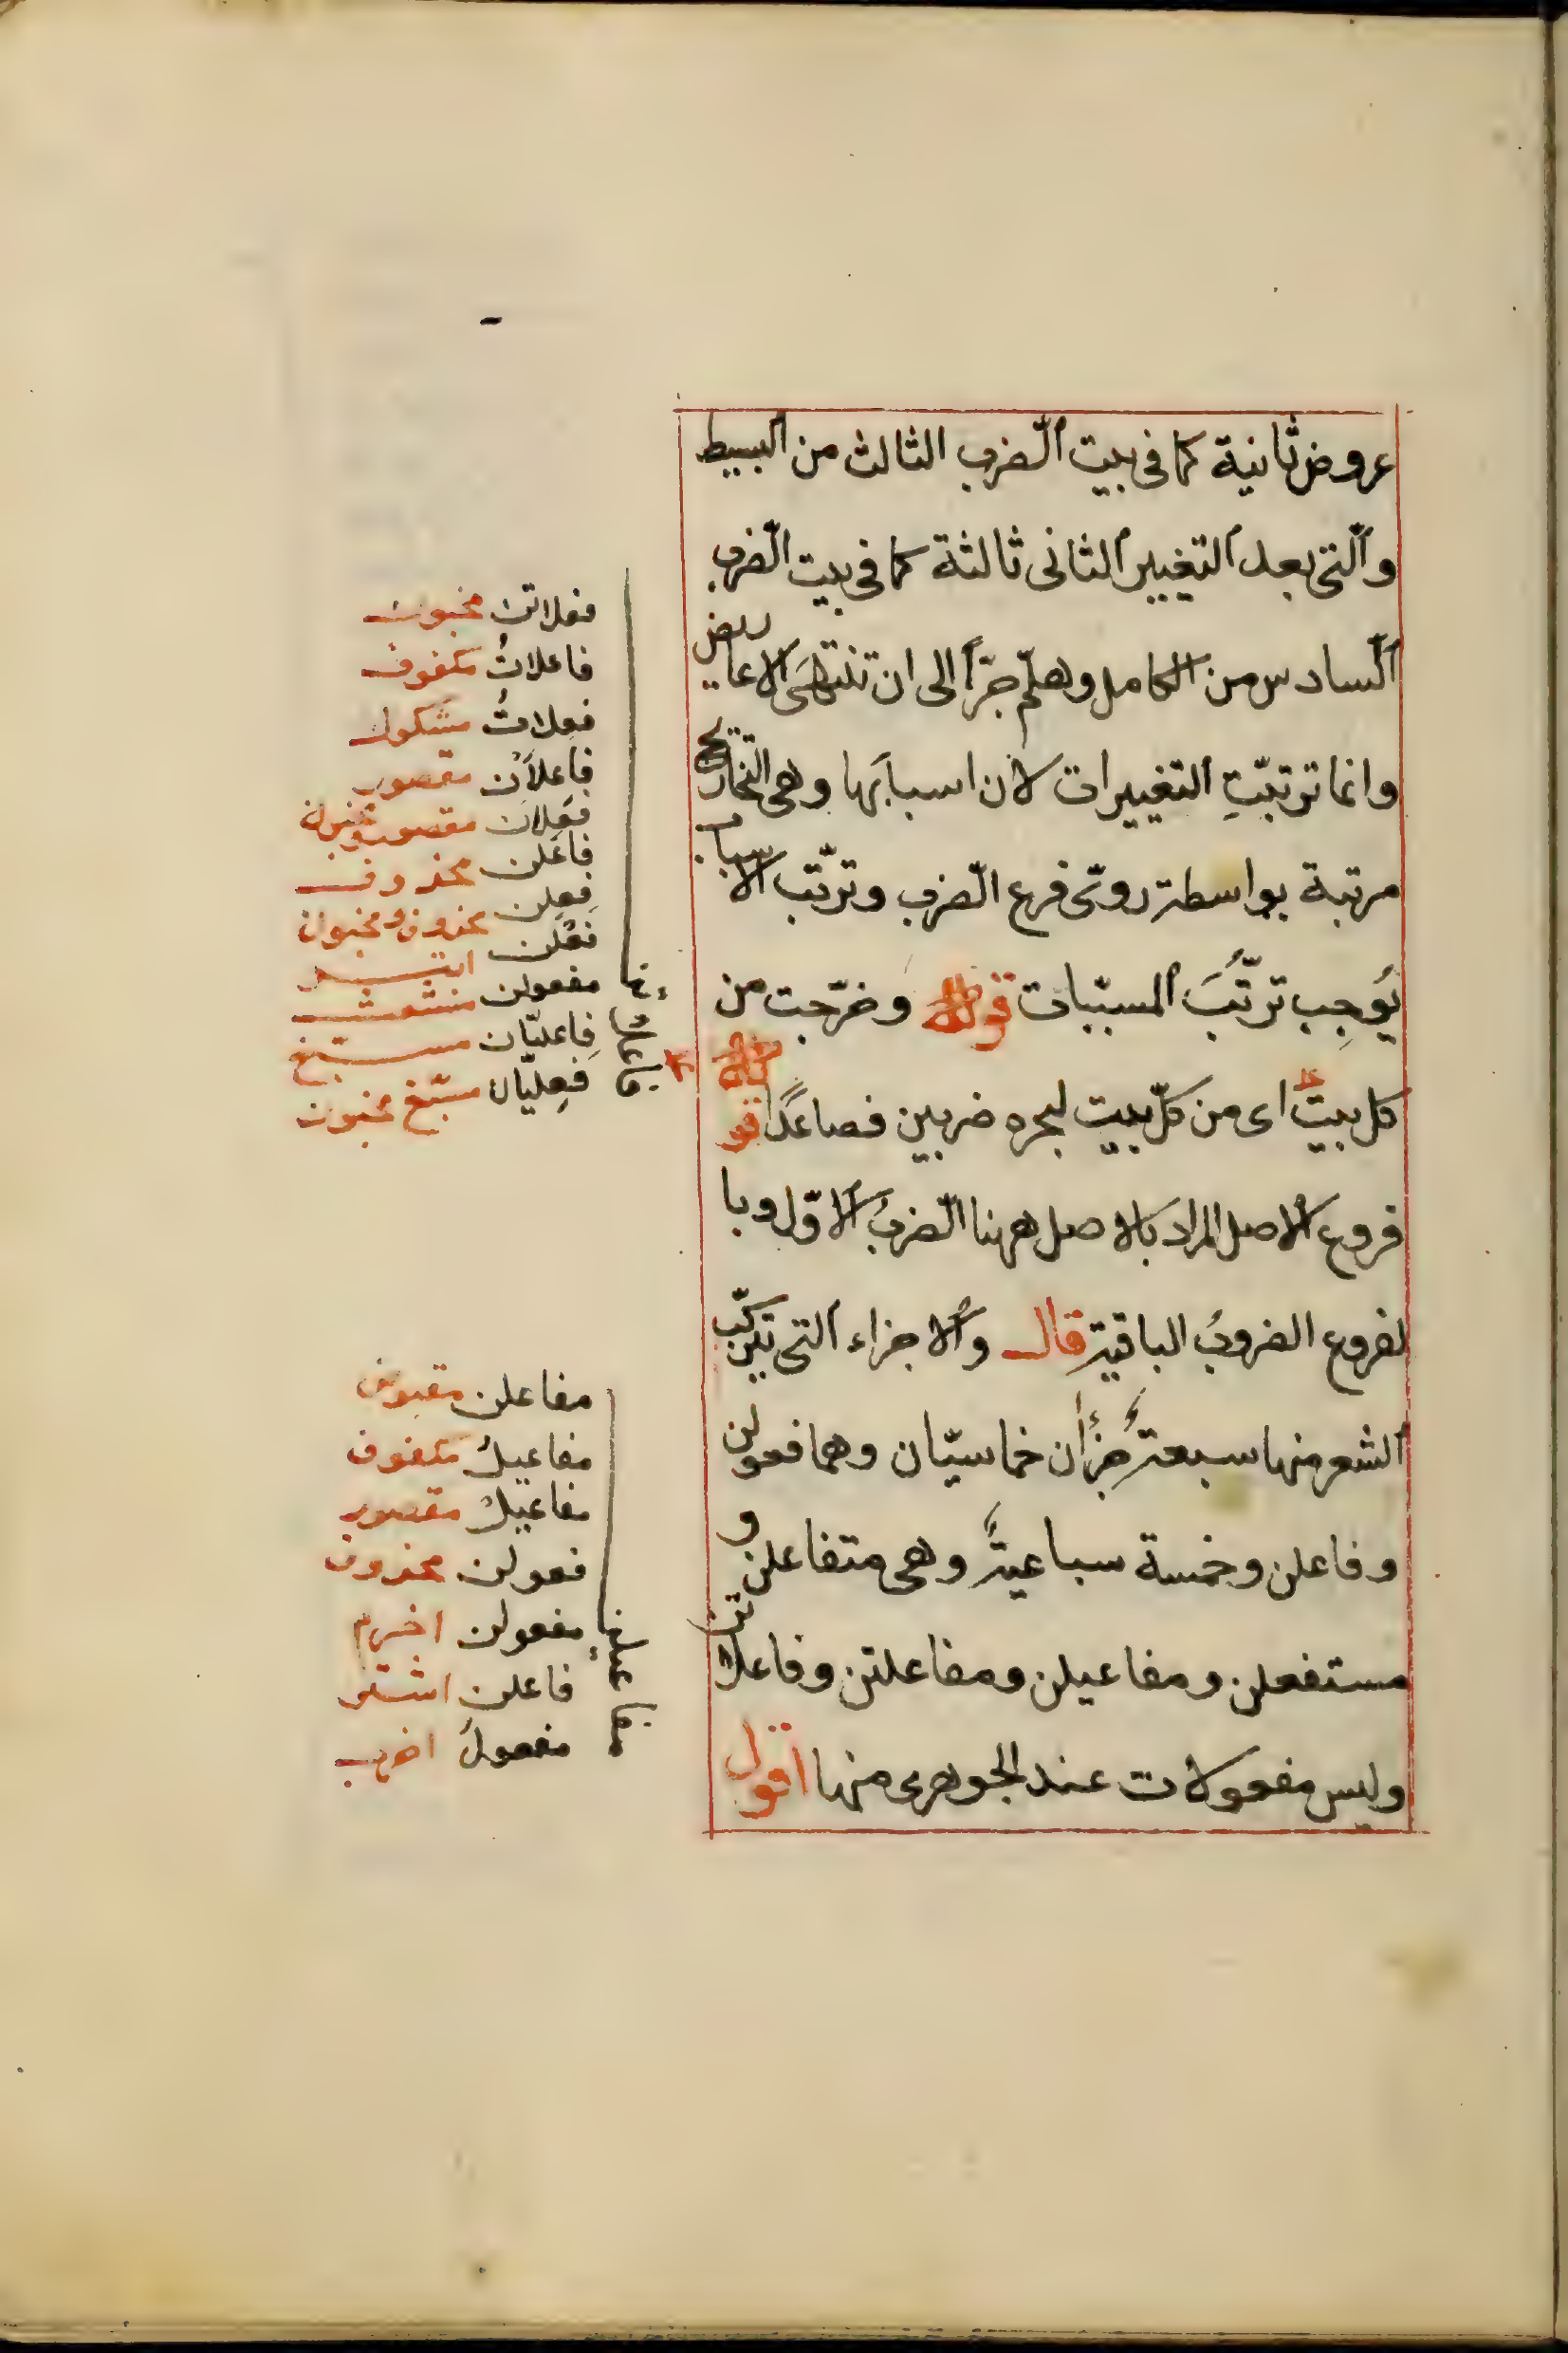 عروض ثانية كما فى بيت الضرب الثالث من البسيط
والتى بعد التغيير الثانى ثالثة كما فى بيت الضرب
السادس من الكامل وهلّم جرّاً الى ان تنتهى الاعاريض
وانما ترتبتِ التغييرات لان اسبابَها وهى التخاريج
مرتبة بواسطة روىّ فرع الضرب وترتّب الاسباب
يُوجِب ترتّبَ المسبّبات قوله وخرّجت من
كل بيت اى من كلّ بيت لبحره ضربين فصاعدًا قوله
فروع الاصل المراد بالاصل ههنا الضربُ الاوّل وبا
لفروع الضروبُ الباقية قال والاجزاء التى تركّب
الشعر منها سبعة جزأان خماسيّان وهما فعولن
وفاعلن وخمسة سباعيةٌ وهى متفاعلن و
مستفعلن ومفاعيلن ومفاعلتن وفاعلاتن
وليس مفعولات عند الجوهرى منها اقول
فعلاتن مخبون
فاعلاتُ مكفوف
فعلاتُ مشكول
فاعلاتْ مقصور
فعلات مقصور مخبون
فاعلن محذوف
فعلن محذوف ومخبون
فعْلن ابتر
مفعولن مشعث
فاعليّان مسبّغ
فعليّان مسبّغ مخبون
فاعلاتن
مفاعلن مقبوض
مفاعيلُ مكفوف
مفاعيلْ مقصور
فعولن محذوف
مفعولن اخرم
فاعلن اشتر
مفعولُ اخرب
مفاعيلن